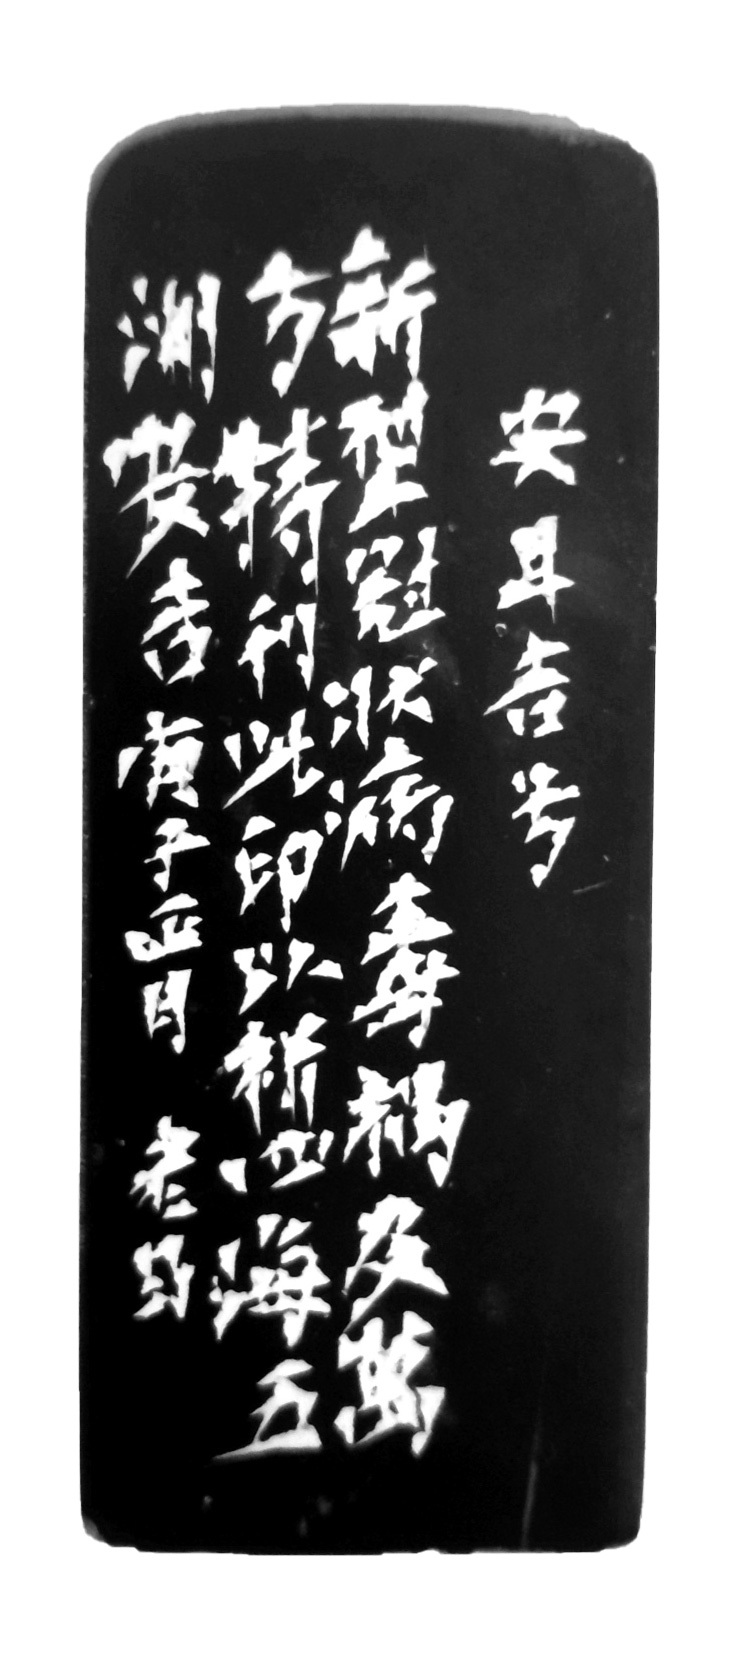 安且吉兮
新型冠状病毒禍及萬
方特刊此印以祈四海五
洲安吉庚子正月 老